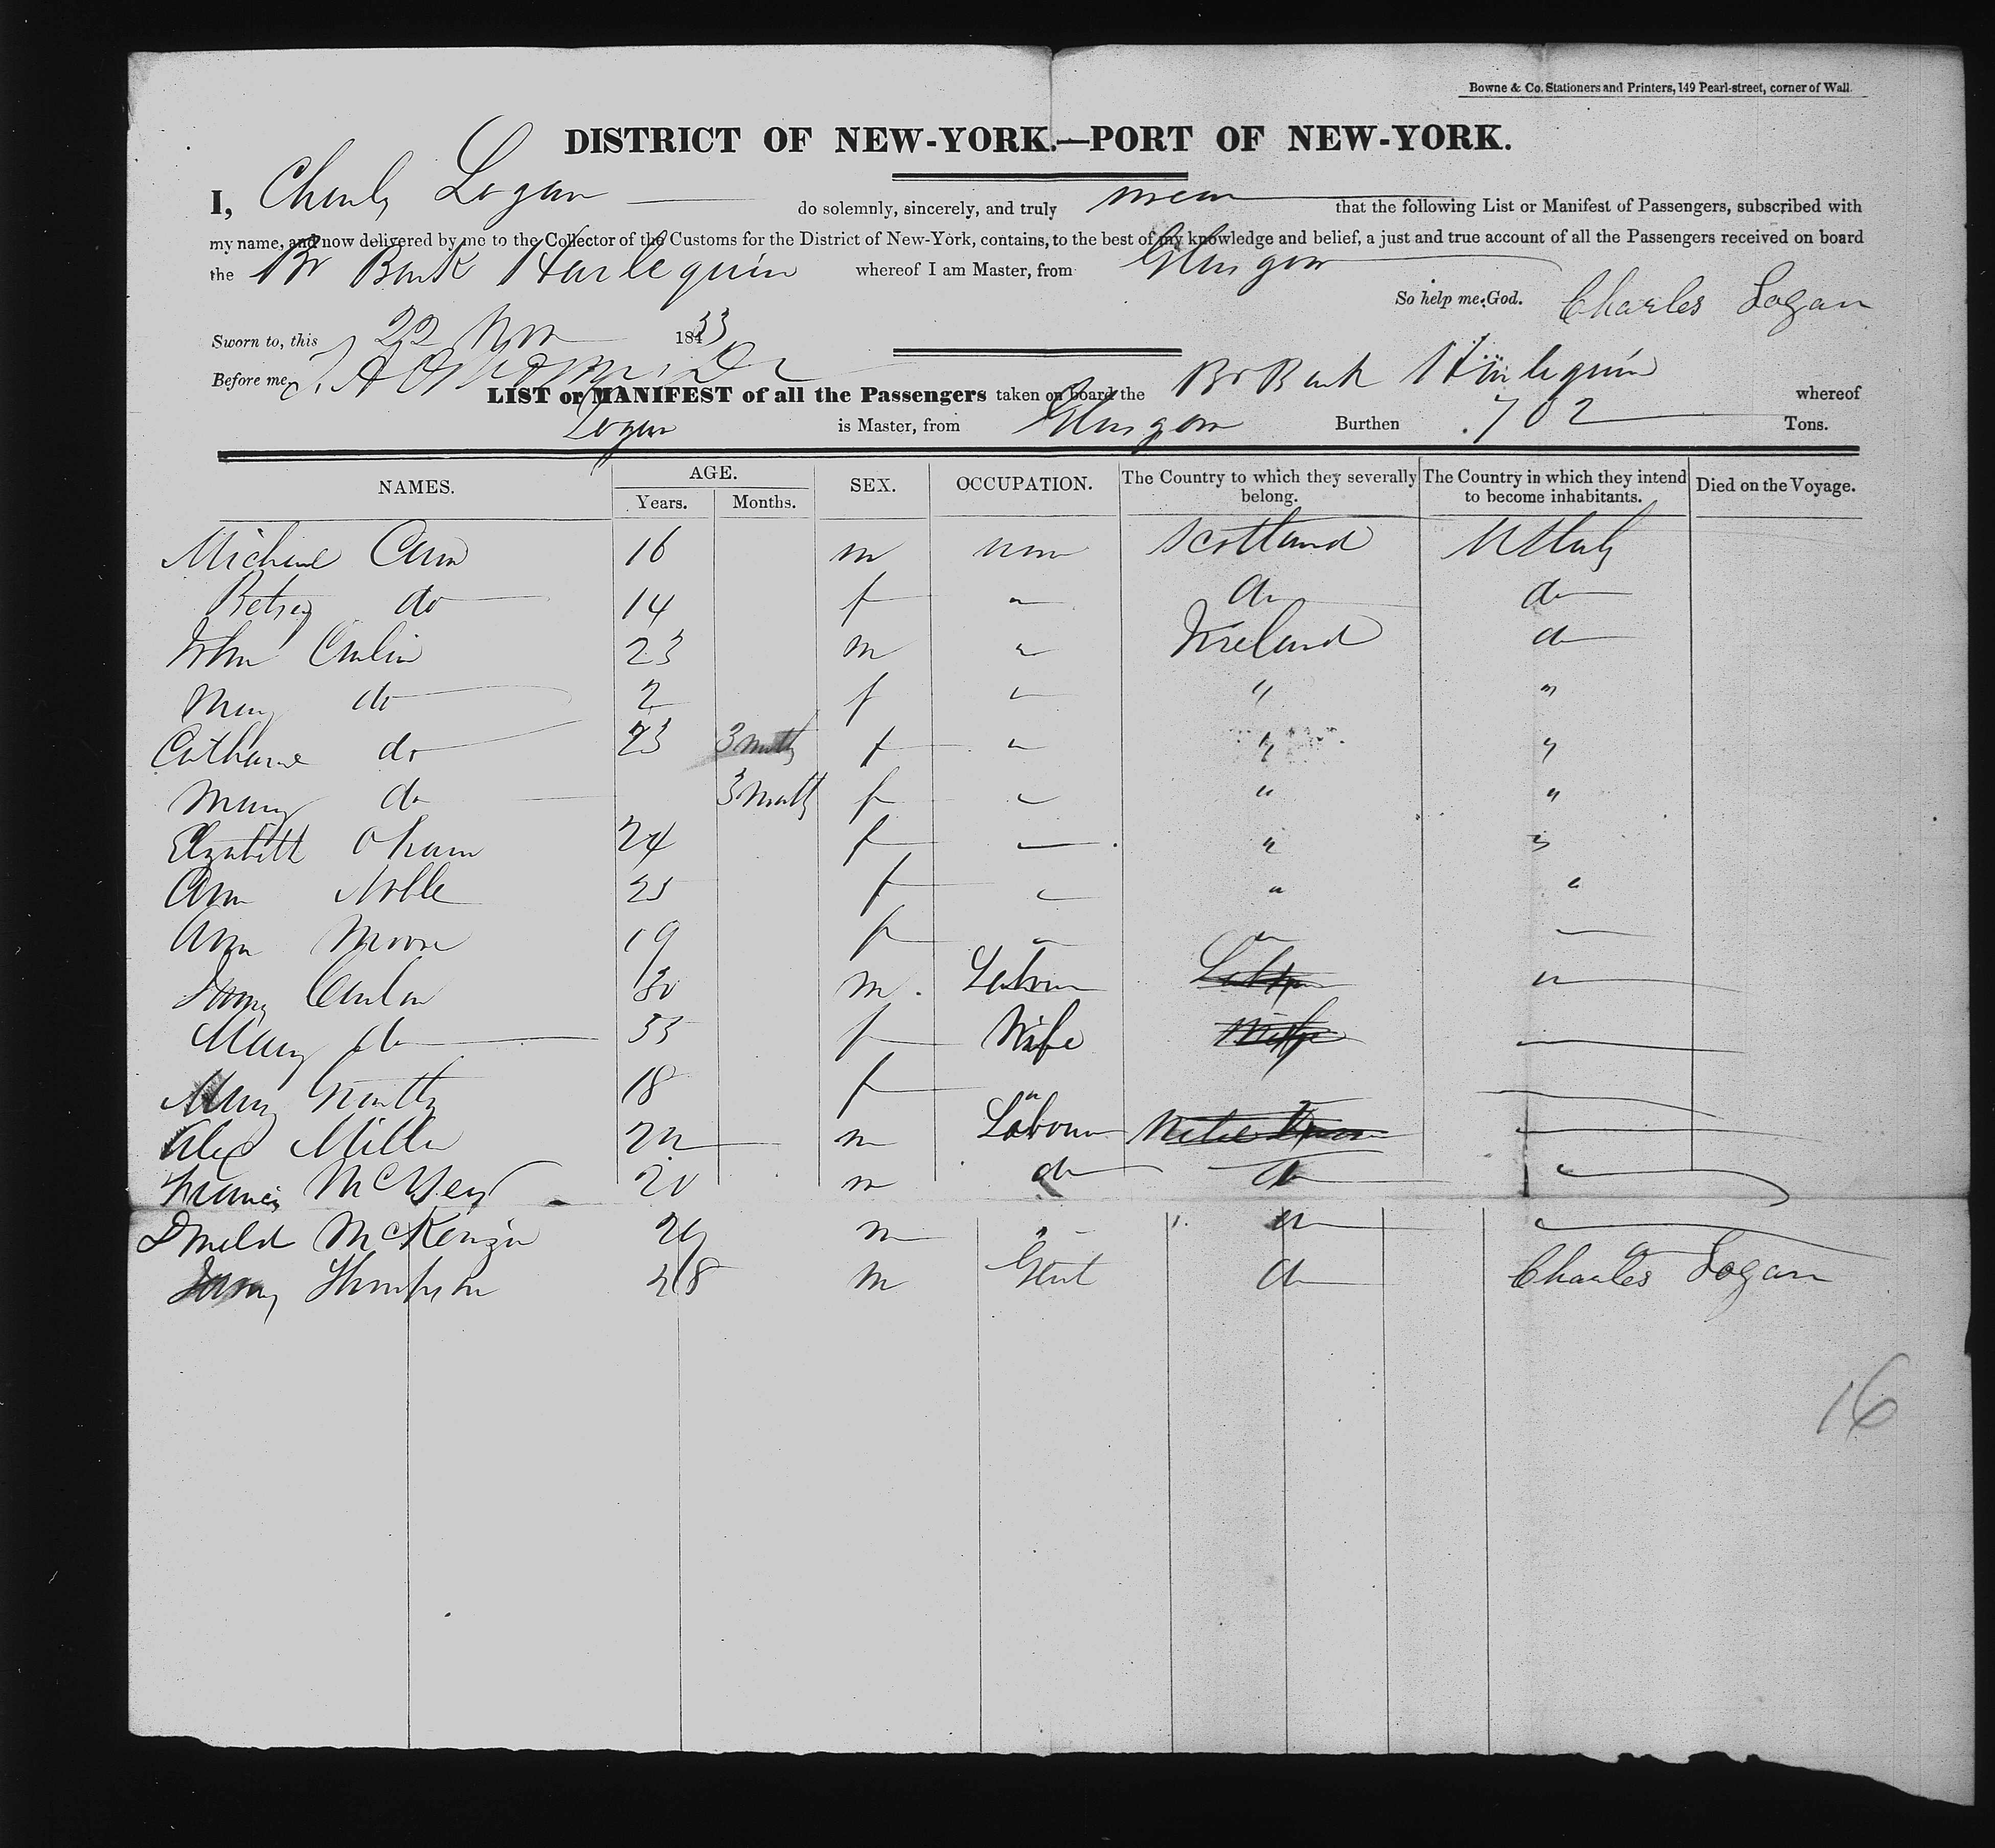 Bowne & Co. Stationers and Printers, 149 Pearl-street, corner of Wall.
DISTRICT OF NEW-YORK.—PORT OF NEW-YORK.
I, Charls Logan do solemnly, sincerely, and truly swear that the following List or Manifest of Passengers, subscribed with
my name, and now delivered by me to the Collector of the Customs for the District of New-York, contains, to the best of my knowledge and belief, a just and true account of all the Passengers received on board
the Br Bark Harlequin whereof I am Master, from Glasgow
So help me God. Charles Logan
Sworn to, this 22 Nov 1853
Before me,
LIST or MANIFEST of all the Passengers taken on board the Br Bark Harlequin whereof
Logan is Master, from Glasgow Burthen 702 Tons.
NAMES. AGE. SEX. OCCUPATION. The Country to which they severally belong. The Country in which they intend to become inhabitants. Died on the Voyage.
Years. Months.
Michael 16 m Scotland U States
Betsey do 14 f do do
John 23 m Ireland do
Mary do 2 f " "
Catharine do 23 3 mths f " "
Mary do 3 mths f " "
Elizabeth 24 f " "
Ann Noble 25 f "
Ann Moore 19 f
James 30 m Labour
Mary do 33 f Wife
Mary 18 f "
Alex Miller 22 m Labour
Francis 20 m do do
Donald McKenzie m " do
James Thompson 28 m Gent do Charles Logan
16